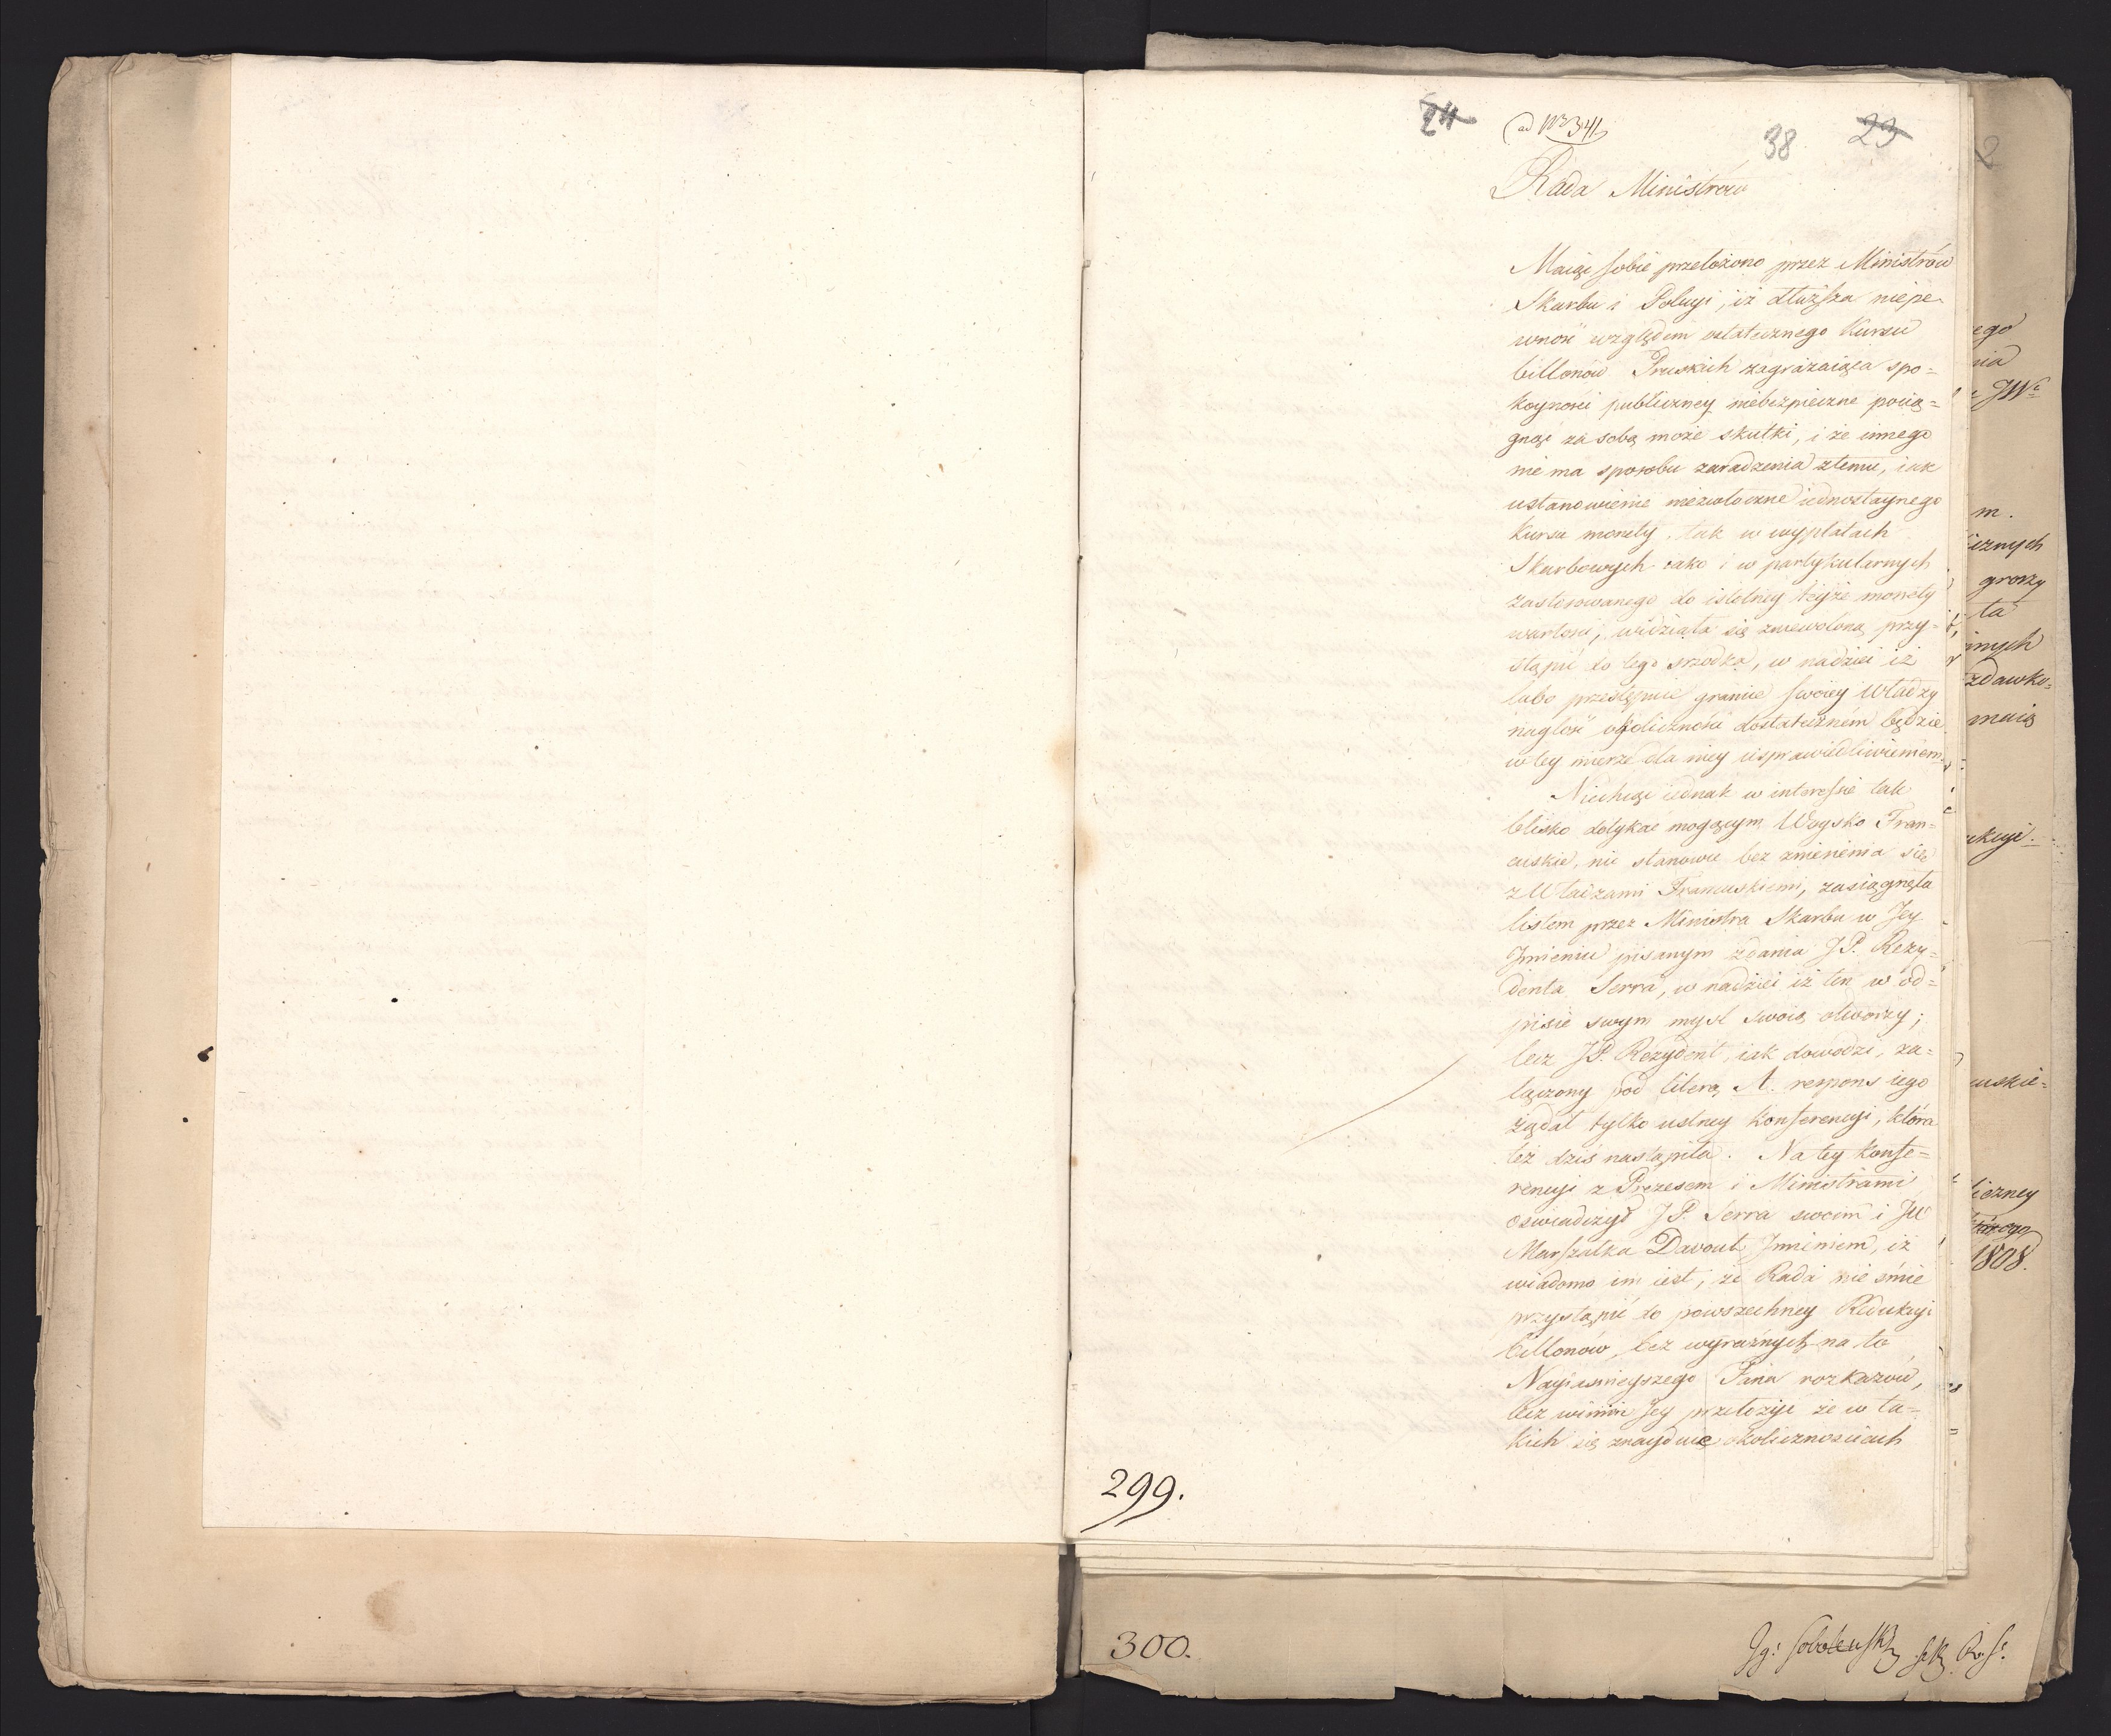 24
(ad Nro 341)
38
23
2
Rada Ministrów
Maiąc sobie przełożono przez Ministrów
Skarbu i Policyi, iż dłuższa niepe-
wność względem ostatecznego Kursu
billonów Pruskich zagrażaiąca spo=
koyności publiczney niebezpieczne pocią=
gnąć za sobą może skutki, i że innego
nie ma sposobu zaradzenia złemu, iak
ustanowienie niezwłoczne iednostaynego
Kursu monety, tak w wypłatach
Skarbowych iako i w partykularnych
zastosowanego do istotney teyże monety
wartości, widziała się zniewoloną przy=
stąpić do tego srzodka, w nadziei iż
lubo przestępuie granice swoiey Władzy
nagłość okoliczności dostatecznem będzie
w tey mierze dla niey usprawiedliwieniem.
Niechcąc iednak w interessie tak
blisko dotykać mogącym Woysko Fran=
cuskie, nic stanowić bez zniesienia się
z Władzami Francuskiemi, zasiągnęła
listem przez Ministra Skarbu w Jey
Jmieniu pisanym zdania JP. Rezy=
denta Serra, w nadziei iż ten w od=
pisie swym mysl swoią otworzy;
lecz JP. Rezydent, iak dowodzi, za=
łączony pod literą A. respons iego
żądał tylko ustney konferencyi, która
też dziś nastąpiła. Na tey konfe=
rencyi z Prezesem i Ministrami
oswiadczył JP. Serra swoim i JW
Marszałka Davout Jmieniem, iż
wiadomo im iest, że Rada nie śmie
przystąpić do powszechney Redukcyi
billonów, bez wyraznych na to
Nayiasnieyszego Pana rozkazów,
lecz winien Jey przełożyć że w ta=
kich się znayduie okolicznościach
299.
300.
ego
nia
JWe
m.
icznych
groszy
ta
innych
zdawko=
maią
ukcyi.
cuskie=
liczney
1808.
Jg: Sobolewski